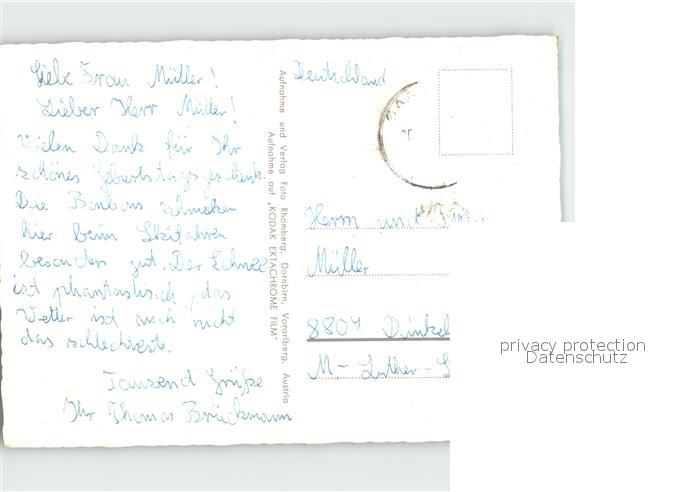 Liebe Frau Müller!
Lieber Herr Müller!
Vielen Dank für Ihr
schönes Geburtstagsgeschenk.
Die Bonbons schmecken
hier beim Skifahren
besonders gut. Der Schnee
ist phantastisch, das
Wetter ist auch nicht
das schlechteste.
Tausend Grüße
Ihr Thomas Brückmann
Aufnahme und Verlag Foto Rhomberg, Dornbirn, Vorarlberg, Austria
Aufnahme auf „KODAK EKTACHROME FILM"
Deutschland
Herrn und
Müller
8804 Dinkel
M-Luther-S
privacy protection
Datenschutz